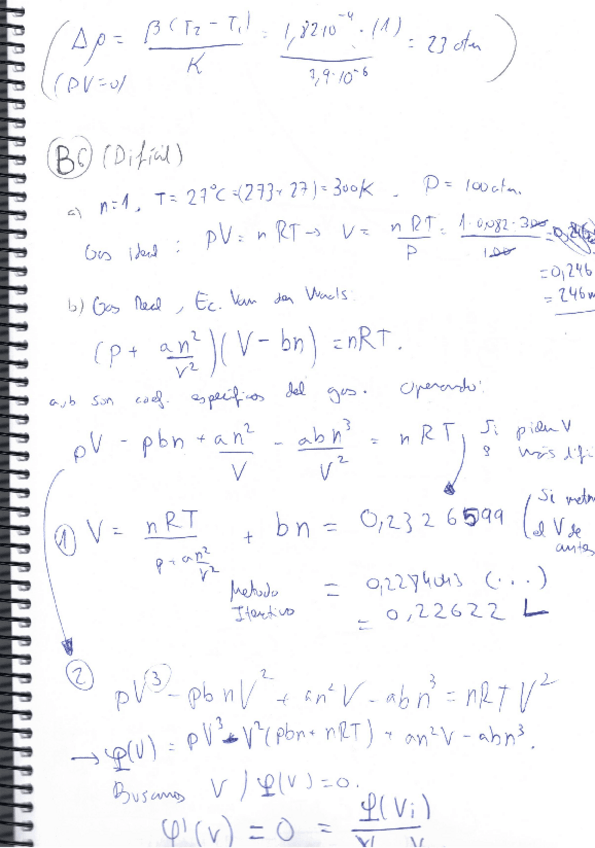 ( Δp = β(T₂ - T₁) / K = 1,82·10⁻⁴ · (1) / 3,9·10⁻⁶ = 23 atm )
(DV=0)
B6 (Difícil)
a) n=1, T= 27°C=(273+27)=300K. P= 100 atm.
Gas ideal: pV= nRT → V= nRT / P = 1·0,082·300 / 100
=0,246
= 246m
b) Gas Real, Ec. Van der Waals:
(p + an²/V²)(V - bn) = nRT.
a,b son coef. específicos del gas. Operando:
pV - pbn + an²/V - abn³/V² = nRT, Si piden V
más difí
① V = nRT / (p + an²/V²) + bn = 0,2326599 (Si
el V de
antes
Metodo = 0,2284043 (...)
Iterativo = 0,22622 L
② pV³ - pbnV² + an²V - abn³ = nRTV²
→ φ(V) = pV³ - V²(pbn + nRT) + an²V - abn³.
Buscamos V / φ(V)=0.
φ'(V) = 0 = φ(Vi)